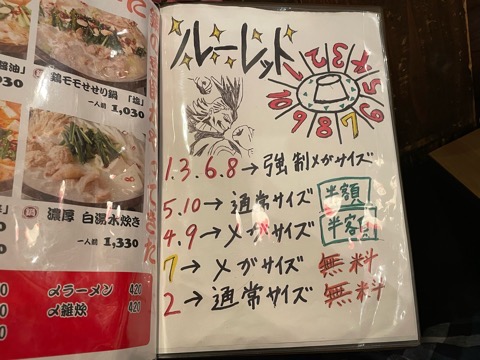 醤油」
030
鶏モモせせり鍋 「塩」
一人前 1,030
濃厚 白湯水炊き
一人前 1,330
〆ラーメン 420
〆雑炊 420
ルーレット
1 2 3 4 5 6 7 8 9 10
1.3.6.8→強制メガサイズ
5.10→通常サイズ 半額
4.9→メガサイズ 半額
7→メガサイズ 無料
2→通常サイズ 無料